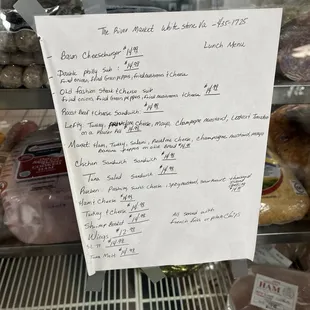 The River Market White Stone Va - 435-1725
Lunch Menu
Bacon Cheeseburger $14.98
Double Philly Sub: $14.98
fried onions, fried Green peppers, fried mushrooms & Cheese
Old fashion Steak & Cheese Sub $14.98
fried onions, fried Green peppers, fried mushrooms & Cheese
Roast Beef & Cheese Sandwich $14.98
Lefty, Turkey, Cheese, mayo, Champagne mustard, Lettuce & Tomatoes
on a $14.98
Market Ham, Turkey, Salami, Cheese, Champagne, mustard, mayo
Banana peppers on $14.98
Chicken Sandwich $14.98
Tuna Salad Sandwich $14.98
Reuben - Pastrami, Swiss Cheese, spicy mustard, sauerkraut
Ham & Cheese $14.98
Turkey & Cheese $14.98
Shrimp Basket $14.98
Wings $17.98
$14.98
Tuna Melt $14.98
All served with
French fries or potato Chips
HAM